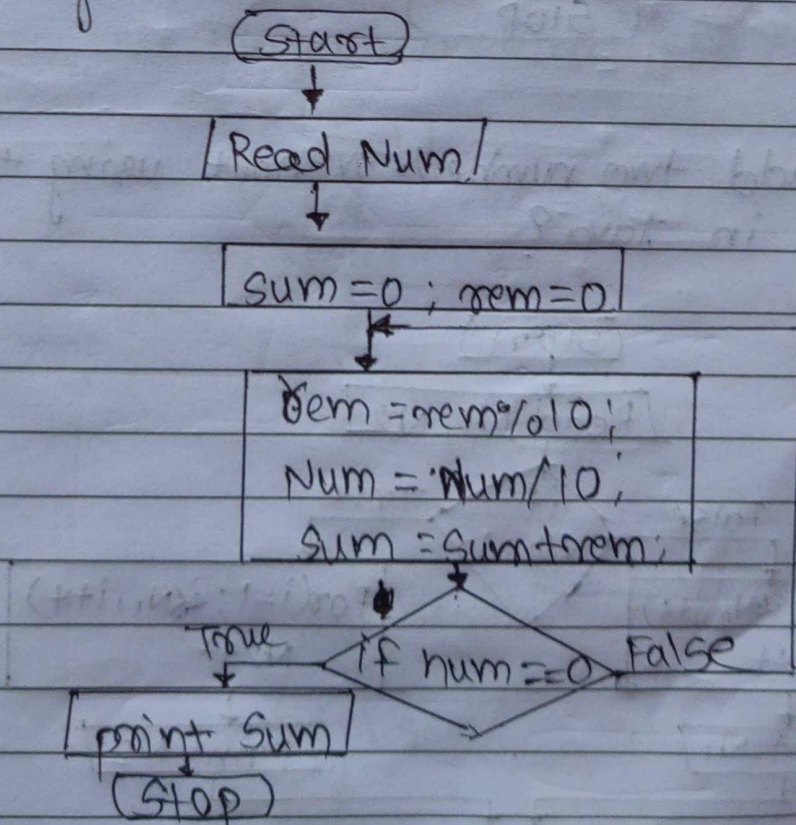 Start
Read Num
sum=0 ; rem=0
rem =rem%10;
Num = Num/10;
sum =sum+rem;
if num==0
True
False
print sum
Stop